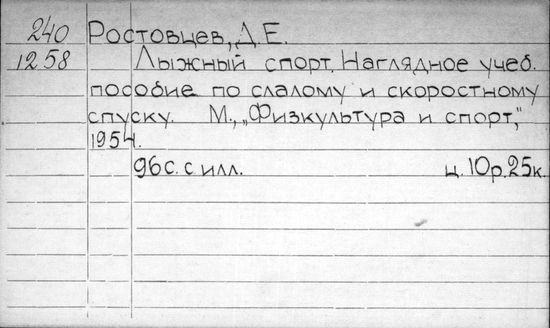 240 Ростовцев, Д.Е.
1258 Лыжный спорт. Наглядное учеб.
пособие по слалому и скоростному
спуску. М., „Физкультура и спорт,"
1954.
96с. с илл. ц. 10р. 25к.